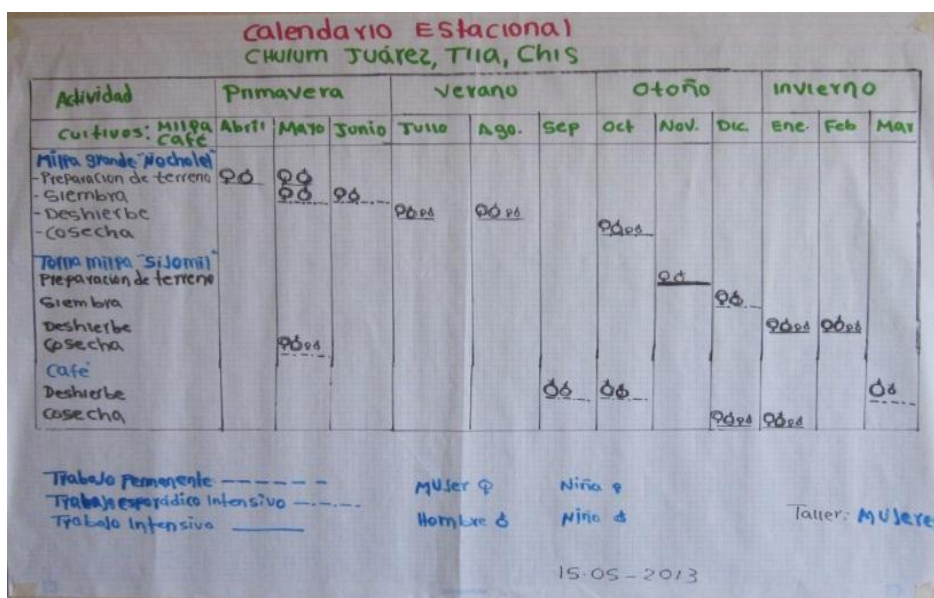 Calendario Estacional
Chulum Juárez, Tila, Chis
Actividad Primavera Verano Otoño Invierno
Cultivos: Milpa Café Abril Mayo Junio Julio Ago. Sep Oct Nov. Dic. Ene. Feb Mar
Milpa grande "Nocholel"
-Preparación de terreno ♀♂ ♀♂
-Siembra ♀♂ ♀♂
-Deshierbe ♀♂♀♂ ♀♂♀♂
-Cosecha ♀♂♀♂
Torna milpa "Sijomil"
Preparación de terreno ♀♂
Siembra ♀♂
Deshierbe ♀♂♀♂ ♀♂♀♂
Cosecha ♀♂♀♂
Café
Deshierbe ♂♂ ♂♂ ♂♂
Cosecha ♀♂♀♂ ♀♂♀♂
Trabajo Permanente
Trabajo esporádico Intensivo
Trabajo Intensivo
Mujer ♀ Niña ♀
Hombre ♂ Niño ♂
Taller: Mujere
15-05-2013